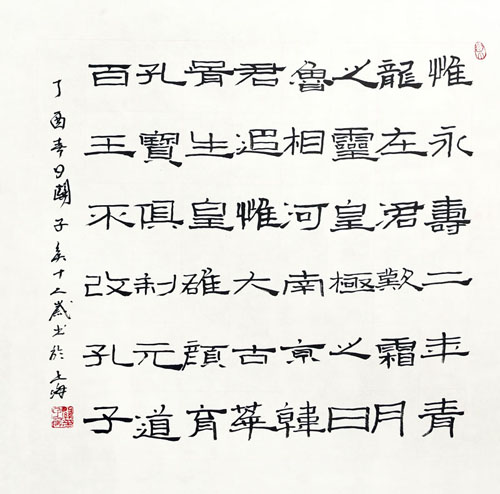 惟永壽二年青
龍在涒歎霜月
之靈皇極之日
魯相河南京韓
君追惟大古華
胥生皇雄顏育
孔寶俱制元道
百王不改孔子
丁酉春日關子十二歲书於上海